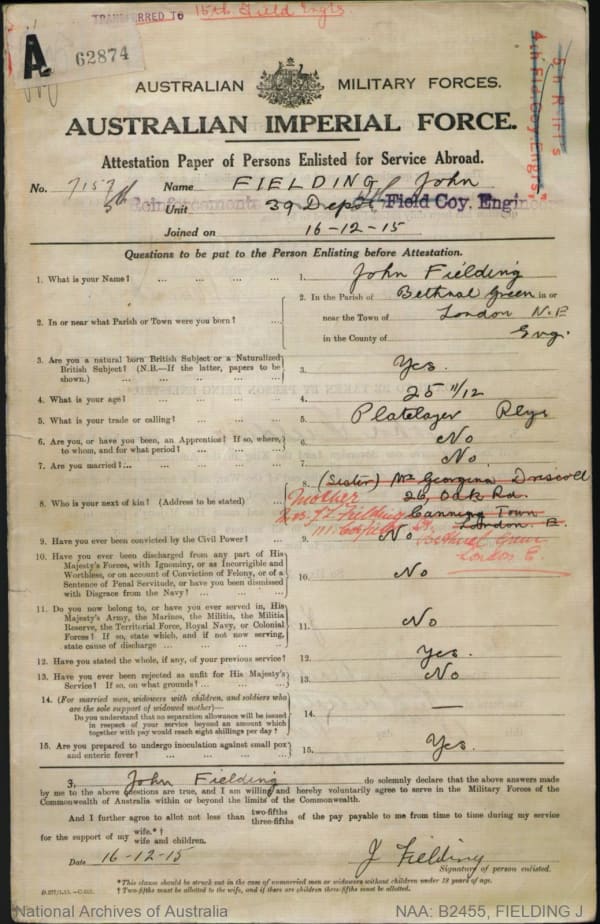 TRANSFERRED TO 15th Field Engrs
A 62874
AUSTRALIAN MILITARY FORCES.
AUSTRALIAN IMPERIAL FORCE.
Attestation Paper of Persons Enlisted for Service Abroad.
No. 7157 Name FIELDING John
Reinforcements Unit 39 Depot Field Coy. Engineers
Joined on 16-12-15
Questions to be put to the Person Enlisting before Attestation.
1. What is your Name? ... ... ... ... 1. John Fielding
2. In or near what Parish or Town were you born? ... 2. In the Parish of Bethnal Green in or
near the Town of London N.E
in the County of Eng.
3. Are you a natural born British Subject or a Naturalized
British Subject? (N.B.—If the latter, papers to be
shown.) ... ... ... ... ... 3. Yes.
4. What is your age? ... ... ... ... 4. 25 11/12
5. What is your trade or calling? ... ... ... 5. Platelayer Rlys
6. Are you, or have you been, an Apprentice? If so, where,
to whom, and for what period? ... ... ... 6. No
7. Are you married? ... ... ... ... 7. No
8. Who is your next of kin? (Address to be stated) ... 8. (Sister) Mrs Georgina Driscoll
Mother 26 Oak Rd.
Mrs. Fielding Canning Town
111 St. London E.
Bethnal Green
London E.
9. Have you ever been convicted by the Civil Power? ... 9. No
10. Have you ever been discharged from any part of His
Majesty's Forces, with Ignominy, or as Incorrigible and
Worthless, or on account of Conviction of Felony, or of a
Sentence of Penal Servitude, or have you been dismissed
with Disgrace from the Navy? ... ... ... 10. No
11. Do you now belong to, or have you ever served in, His
Majesty's Army, the Marines, the Militia, the Militia
Reserve, the Territorial Force, Royal Navy, or Colonial
Forces? If so, state which, and if not now serving,
state cause of discharge ... ... ... ... 11. No
12. Have you stated the whole, if any, of your previous service? 12. Yes.
13. Have you ever been rejected as unfit for His Majesty's
Service? If so, on what grounds? ... ... ... 13. No
14. (For married men, widowers with children, and soldiers who
are the sole support of widowed mother—
Do you understand that no separation allowance will be issued
in respect of your service beyond an amount which
together with pay would reach eight shillings per day? 14. —
15. Are you prepared to undergo inoculation against small pox
and enteric fever? ... ... ... ... 15. Yes.
I, John Fielding do solemnly declare that the above answers made
by me to the above questions are true, and I am willing and hereby voluntarily agree to serve in the Military Forces of the
Commonwealth of Australia within or beyond the limits of the Commonwealth.
And I further agree to allot not less than two-fifths three-fifths of the pay payable to me from time to time during my service
for the support of my wife.*† wife and children.
Date 16-12-15 J Fielding
Signature of person enlisted.
*This clause should be struck out in the case of unmarried men or widowers without children under 18 years of age.
† Two-fifths must be allotted to the wife, and if there are children three-fifths must be allotted.
National Archives of Australia NAA: B2455, FIELDING J